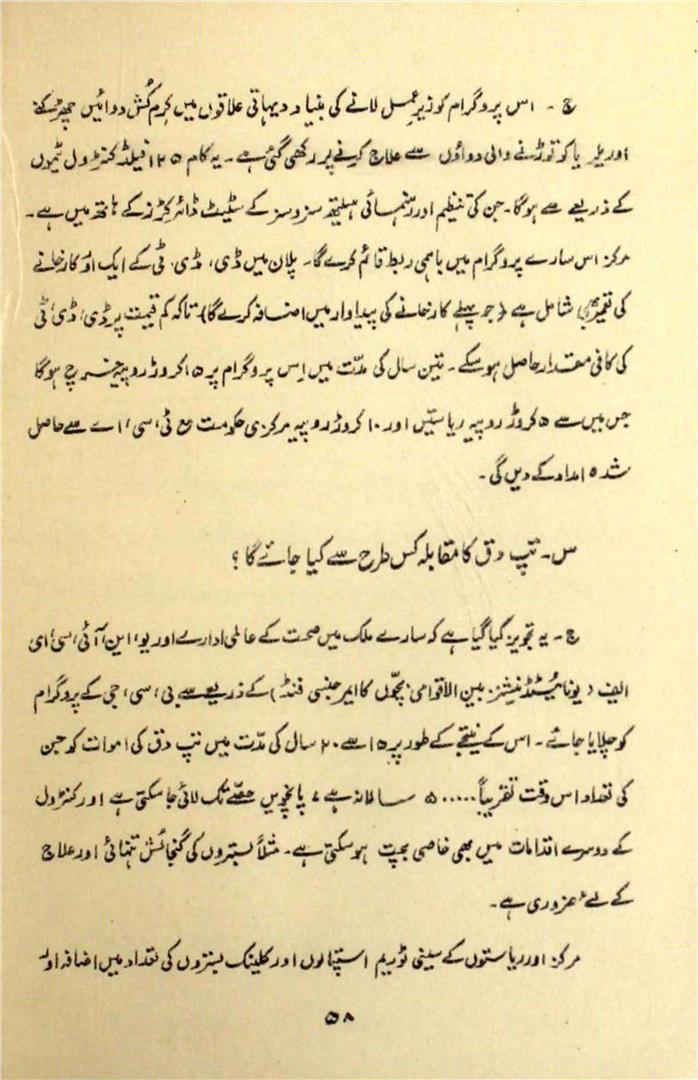 ج - اس پروگرام کو زیرِ عمل لانے کی بنیاد دیہاتی علاقوں میں کرم کُش دوائیں چھڑکنے
اور ملیریا کو توڑنے والی دواؤں سے علاج کرنے پر رکھی گئی ہے۔ یہ کام ۱۲۵ فیلڈ کنٹرول ٹیموں
کے ذریعے سے ہوگا۔ جن کی تنظیم اور رہنمائی ہیلتھ سروسز کے سٹیٹ ڈائرکٹرز کے ہاتھ میں ہے۔
مرکز اس سارے پروگرام میں باہمی ربط قائم کرے گا۔ پلان میں ڈی، ڈی، ٹی کے ایک اور کارخانے
کی تعمیر بھی شامل ہے (جو پہلے کارخانے کی پیداوار میں اضافہ کرے گا) تاکہ کم قیمت پر ڈی، ڈی، ٹی
کی کافی مقدار حاصل ہو سکے۔ تین سال کی مدّت میں اِس پروگرام پر ۱۵ کروڑ روپیہ خرچ ہوگا
جس میں سے ۵ کروڑ روپیہ ریاستیں اور ۱۰ کروڑ روپیہ مرکزی حکومت مع ٹی، سی، اے سے حاصل
شدہ امداد کے دیں گی۔
س۔ تپ دق کا مقابلہ کس طرح سے کیا جائے گا؟
ج - یہ تجویز کیا گیا ہے کہ سارے ملک میں صحت کے عالمی ادارے اور یو، این، آئی، سی، ای
ایف (یونائیٹڈ نیشنز بین الاقوامی بچّوں کا ایمرجنسی فنڈ) کے ذریعے سے بی، سی، جی کے پروگرام
کو چلایا جائے۔ اس کے نتیجے کے طور پر ۱۵ سے ۲۰ سال کی مدّت میں تپ دق کی اموات کو جن
کی تعداد اس وقت تقریباً ۵۰۰۰۰۰ سالانہ ہے، پانچویں حصّے تک لائی جا سکتی ہے اور کنٹرول
کے دوسرے اقدامات میں بھی خاصی بچت ہو سکتی ہے۔ مثلاً بستروں کی گنجائش تنہائی اور علاج
کے لیے ضروری ہے۔
مرکز اور ریاستوں کے سینی ٹوریم اسپتالوں اور کلینک بستروں کی تعداد میں اضافہ اور
۵۸